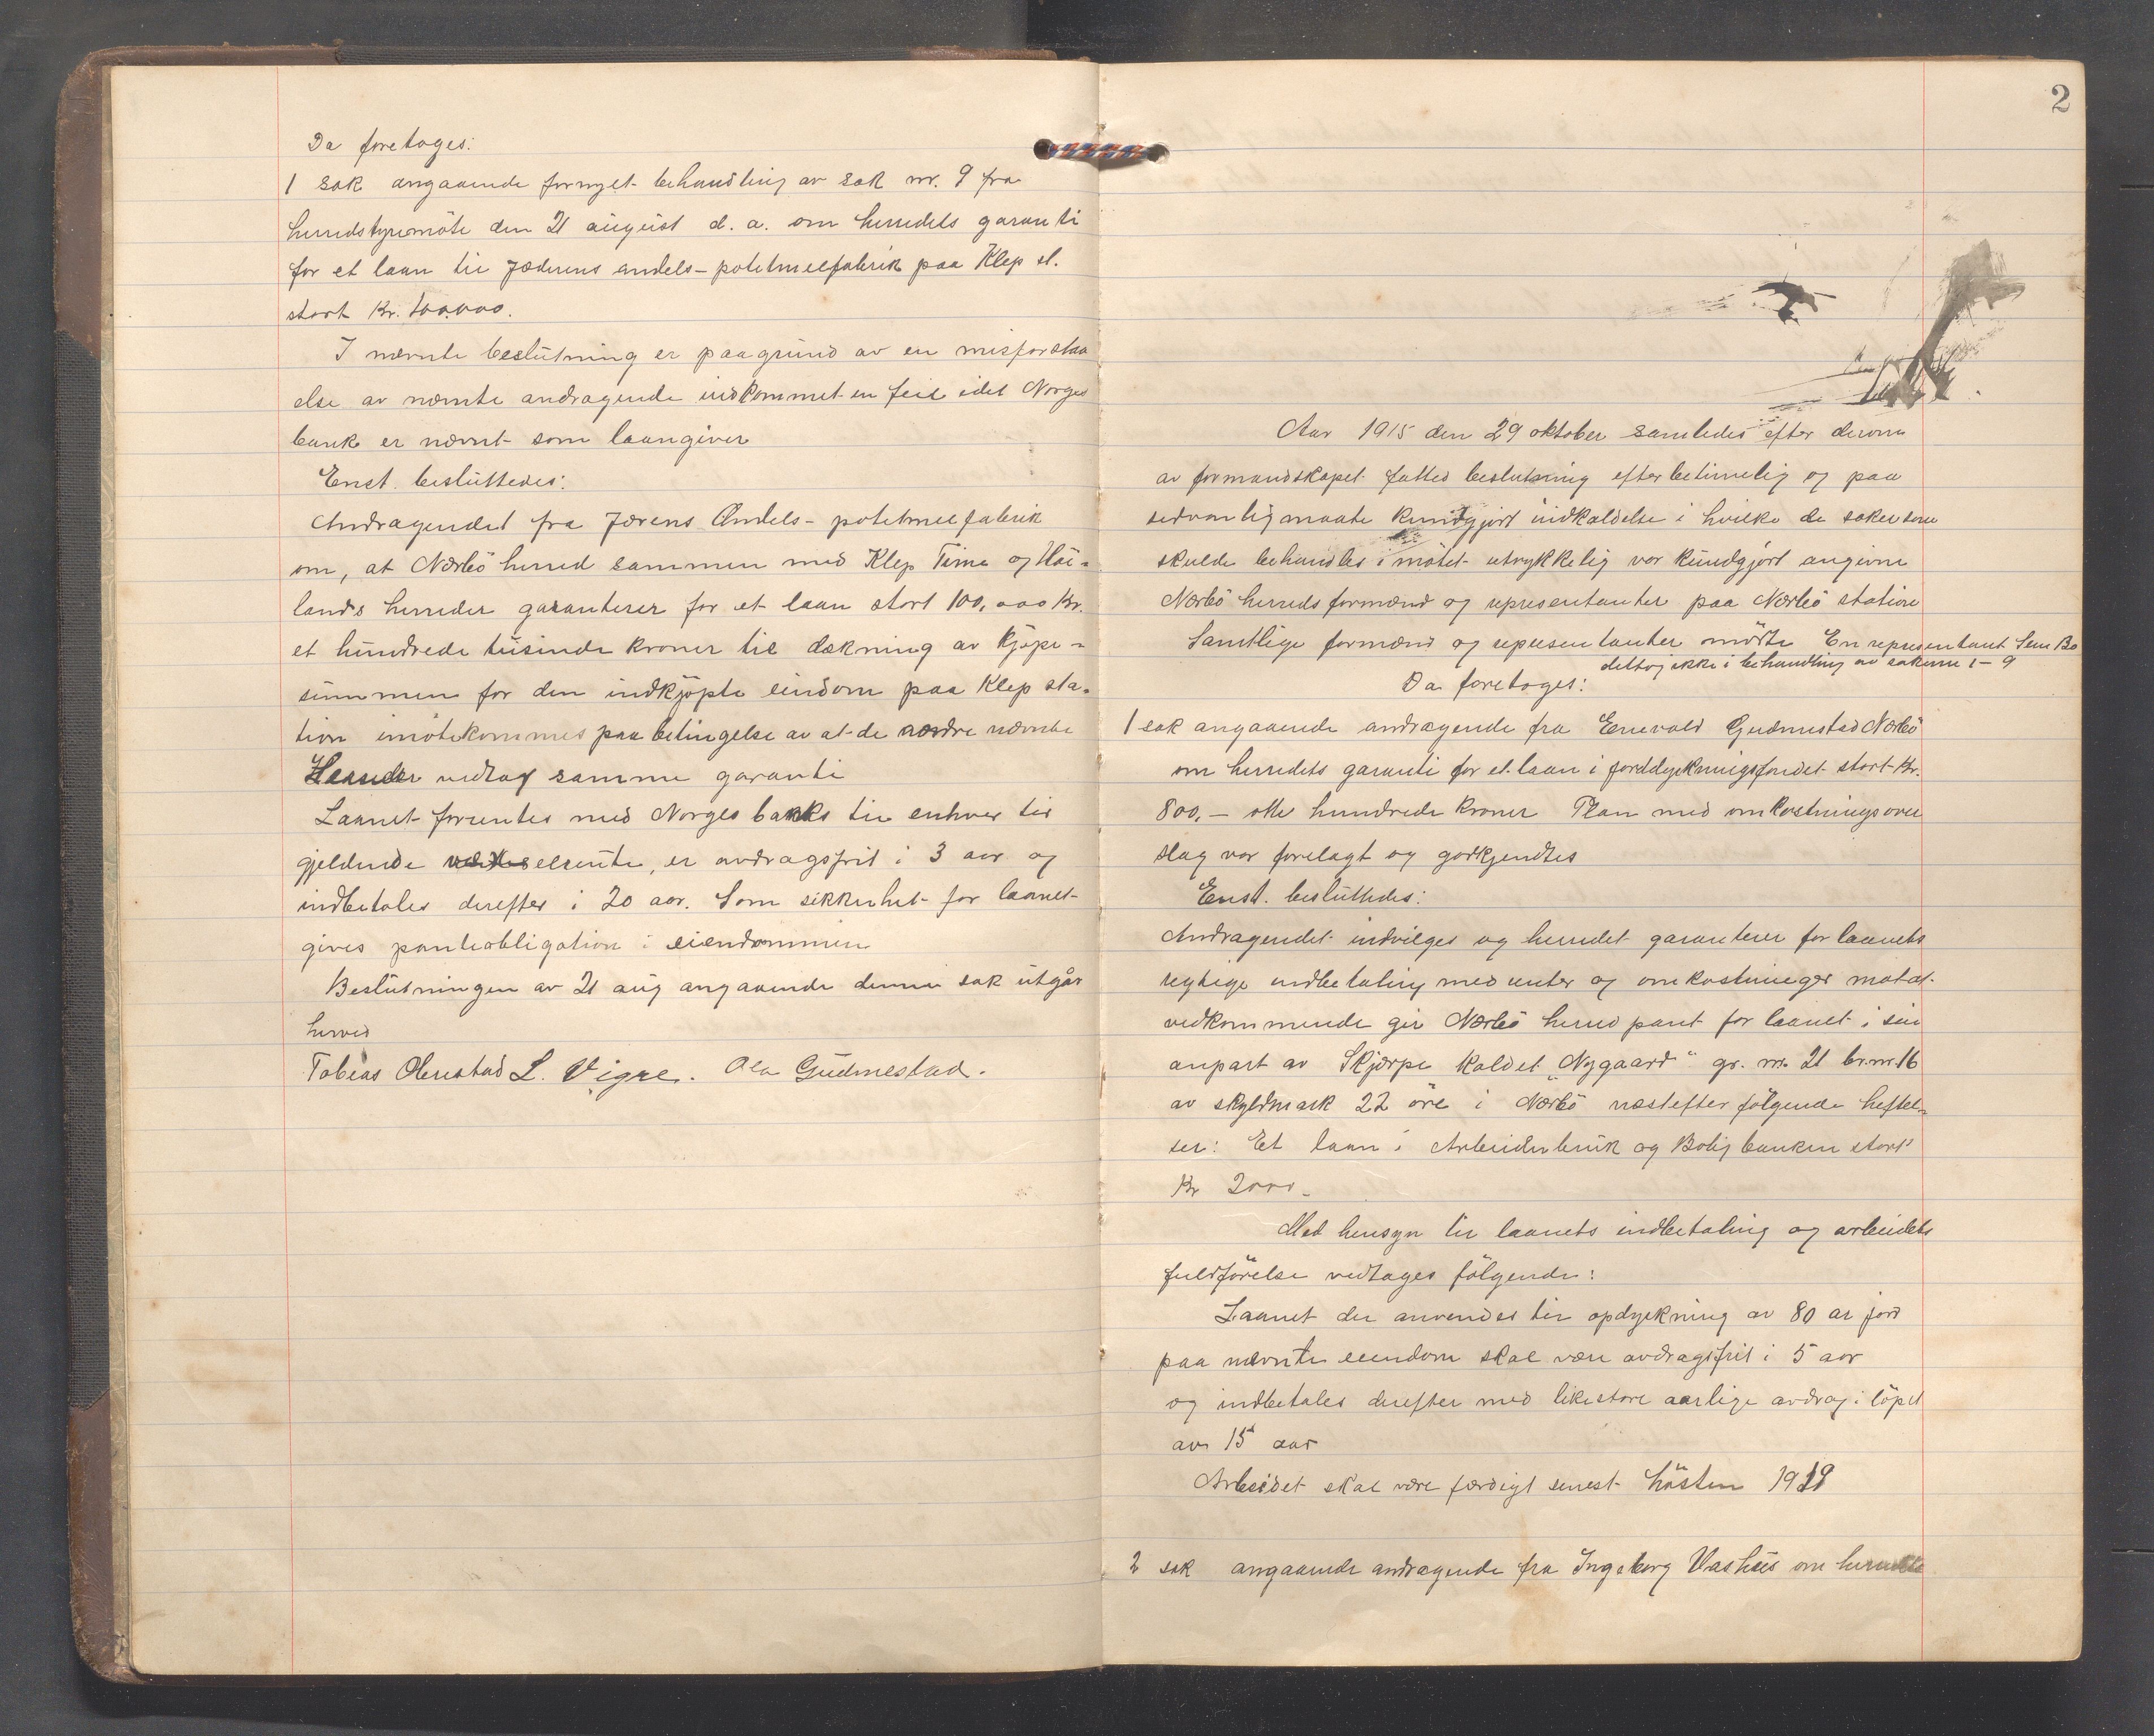 Da foretages:
1 sak angaaende fornyet behandling av sak nr. 9 fra
herredstyremöte den 21 august d. a. om herredets garanti
for et laan til Jæderens andels-potetmelfabrik paa Klep st.
stort Kr. 100.000.
I nævnte beslutning er paagrund av en misforstaa
else av nævnte andragende indkommet en feil idet Norges
bank er nævnt som laangiver
Enst. besluttedes:
Andragendet fra Jærens Andels-potetmelfabrik
om, at Nærbö herred sammen med Klep Time og Höi-
lands herreder garanterer for et laan stort 100,000 Kr.
et hundrede tusinde kroner til dækning av kjöpe-
summen for den indkjöpte eiendom paa Klep sta-
tion imötekommes paa betingelse av at de andre nævnte
Herreder vedtar samme garanti
Laanet forrentes med Norges banks til enhver tid
gjeldende vekselrente, er avdragsfrit i 3 aar og
indbetales derefter i 20 aar. Som sikkerhet for laanet
gives panteobligation i eiendommen
Beslutningen av 21 aug angaaende denne sak utgår
herved
Tobias Obrestad L. Vigre. Ola Gudmestad.
2
Aar 1915 den 29 oktober samledes efter derom
av formandskapet fatted beslutning efter betimelig og paa
sedvanlig maate kundgjort indkaldelse i hvilke de saker som
skulde behandles i mötet utrykkelig var kundgjort angivne
Nærbö herreds formænd og representanter paa Nærbö station
Samtlige formænd og representanter mödte En representant Sem Bö
deltog ikke i behandling av sakerne 1-9
Da foretoges:
1 sak angaaende andragende fra Enevald Gudmestad Nærbö
om herredets garanti for et laan i jorddyrkningsfondet stort Kr.
800,- otte hundrede kroner Plan med omkostningsover
slag var forelagt og godkjendtes
Enst. besluttedes:
Andragendet indvilges og herredet garanterer for laanets
regtige indbetaling med renter og omkostninger motat
vedkommende gir Nærbö herred pant for laanet i sin
anpart av Skjærpe kaldet "Nygaard" gr. nr. 21 br. nr. 16
av skyldmark 22 öre i Nærbö næstefter fölgende heftel-
ser: Et laan i Arbeiderbruk og Boligbanken stort
Kr 2000-
Med hensyn til laanets indbetaling og arbeidets
fuldförelse vedtages fölgende:
Laanet der anvendes til opdyrkning av 80 ar jord
paa nævnte eiendom skal være avdragsfrit i 5 aar
og indbetales derefter med likestore aarlige avdrag i löpet
av 15 aar
Arbeidet skal være færdigt senest hösten 1919
2 sak angaaende andragende fra Ingeborg Vashus om herredets